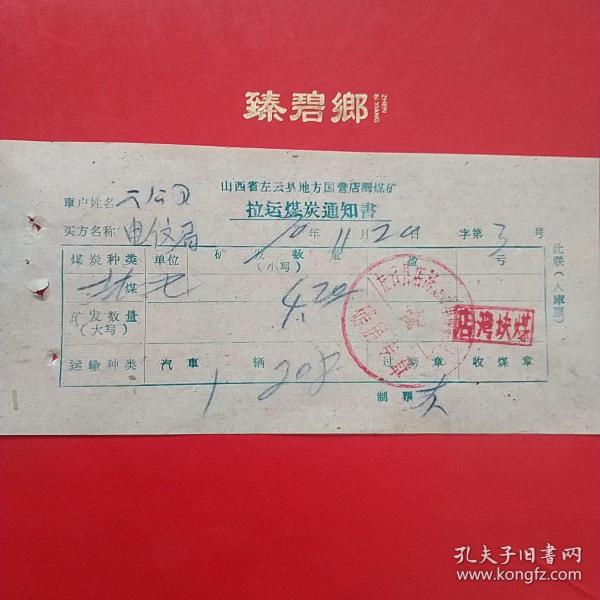 臻碧鄉
ZHEN
BI XIANG
山西省左云县地方国营店灣煤矿
拉运煤炭通知書
車户姓名 六公司
买方名称 电信局 年 11 月 20 日 字第 3 号
煤炭种类 单位 矿发数量 盈亏
(小写)
块煤
4.20
矿发数量
(大写)
运输种类 汽車 辆 过磅章 收煤章
1 208
制票
店灣块煤
此联(入庫票)
孔夫子旧书网
www.kongfz.com